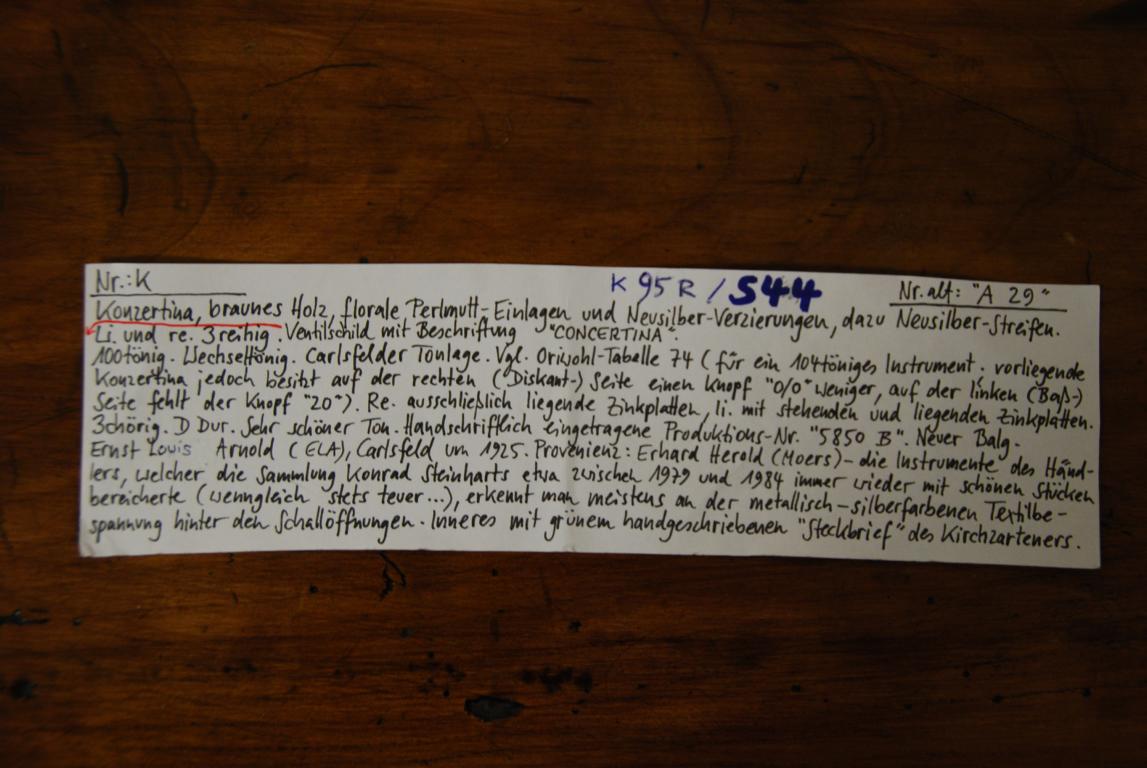 Nr.: K K 95 R / 544 Nr. alt: "A 29"
Konzertina, braunes Holz, florale Perlmutt-Einlagen und Neusilber-Verzierungen, dazu Neusilber-Streifen.
Li. und re. 3reihig. Ventilschild mit Beschriftung "CONCERTINA".
100tönig. Wechseltönig. Carlsfelder Tonlage. Vgl. Oriwohl-Tabelle 74 (für ein 104töniges Instrument. vorliegende
Konzertina jedoch besitzt auf der rechten (Diskant-) Seite einen Knopf "0/0" weniger, auf der linken (Baß-)
Seite fehlt der Knopf "20"). Re. ausschließlich liegende Zinkplatten, li. mit stehenden und liegenden Zinkplatten.
3chörig. D Dur. Sehr schöner Ton. Handschriftlich eingetragene Produktions-Nr. "5850 B". Neuer Balg.
Ernst Louis Arnold (ELA), Carlsfeld um 1925. Provenienz: Erhard Herold (Moers) - die Instrumente des Händ-
lers, welcher die Sammlung Konrad Steinharts etwa zwischen 1979 und 1984 immer wieder mit schönen Stücken
bereicherte (wenngleich stets teuer...), erkennt man meistens an der metallisch-silberfarbenen Textilbe-
spannung hinter den Schallöffnungen. Inneres mit grünem handgeschriebenen "Steckbrief" des Kirchzarteners.